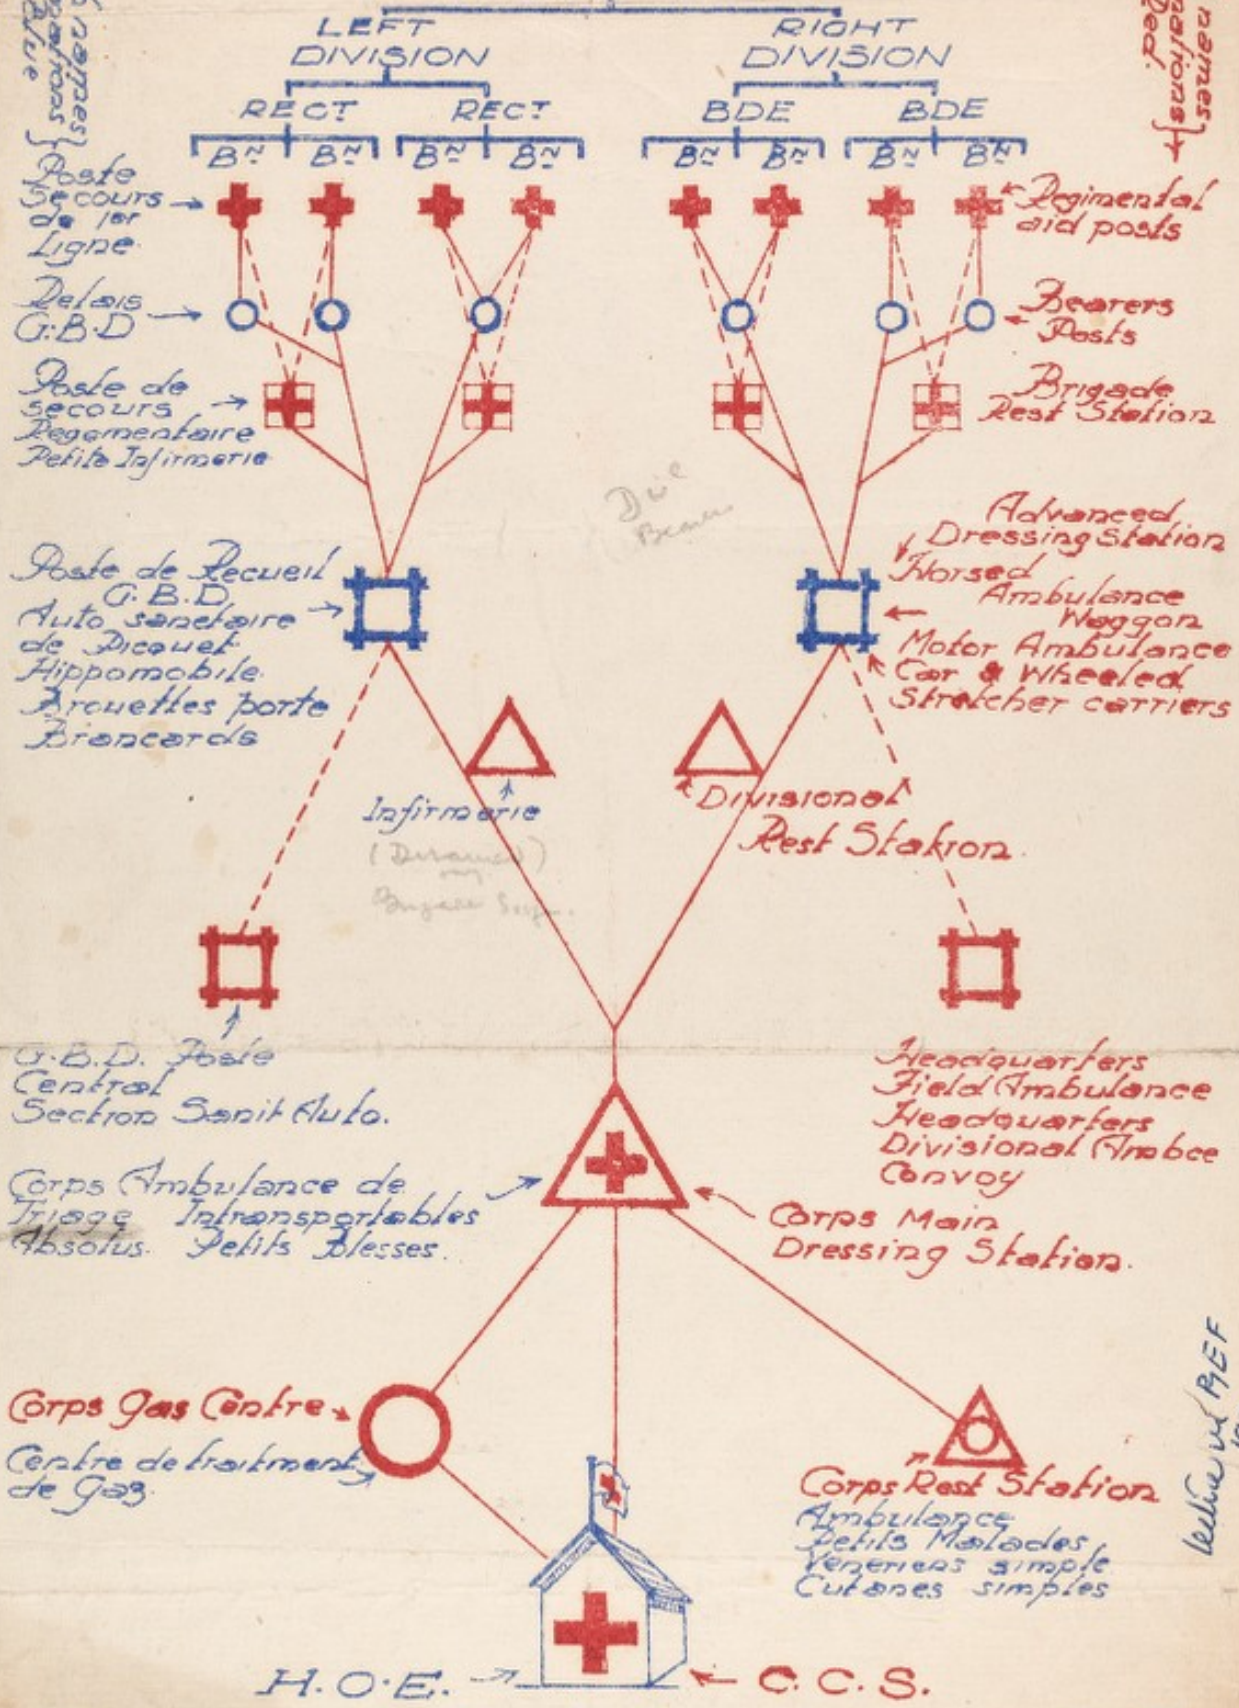 names
nations
Blue
names
nations
Red.
LEFT
DIVISION
RIGHT
DIVISION
RECT
RECT
BDE
BDE
Bn
Bn
Bn
Bn
Bn
Bn
Bn
Bn
Poste
Secours
de 1er
Ligne
Regimental
aid posts
Relais
G.B.D
Bearers
Posts
Poste de
secours
Regomentaire
Petits Infirmerie
Brigade
Rest Station
Advanced
Dressing Station
Horsed
Ambulance
Waggon
Motor Ambulance
Car & Wheeled
Stretcher carriers
Poste de Recueil
G.B.D.
Auto sanetaire
de Picquet
Hippomobile
Brouettes porte
Brancards
Infirmerie
Divisional
Rest Station.
G.B.D. Poste
Central
Section Sanit Auto.
Headquarters
Field Ambulance
Headquarters
Divisional Ambce
Convoy
Corps Ambulance de
Triage Intransportables
Absolus. Petits Blesses.
Corps Main
Dressing Station.
Corps Gas Centre
Centre de traitment
de Gaz
Corps Rest Station
Ambulance
Petits Malades
Veneriens simple
Cutanes simples
BEF
H.O.E.
C.C.S.